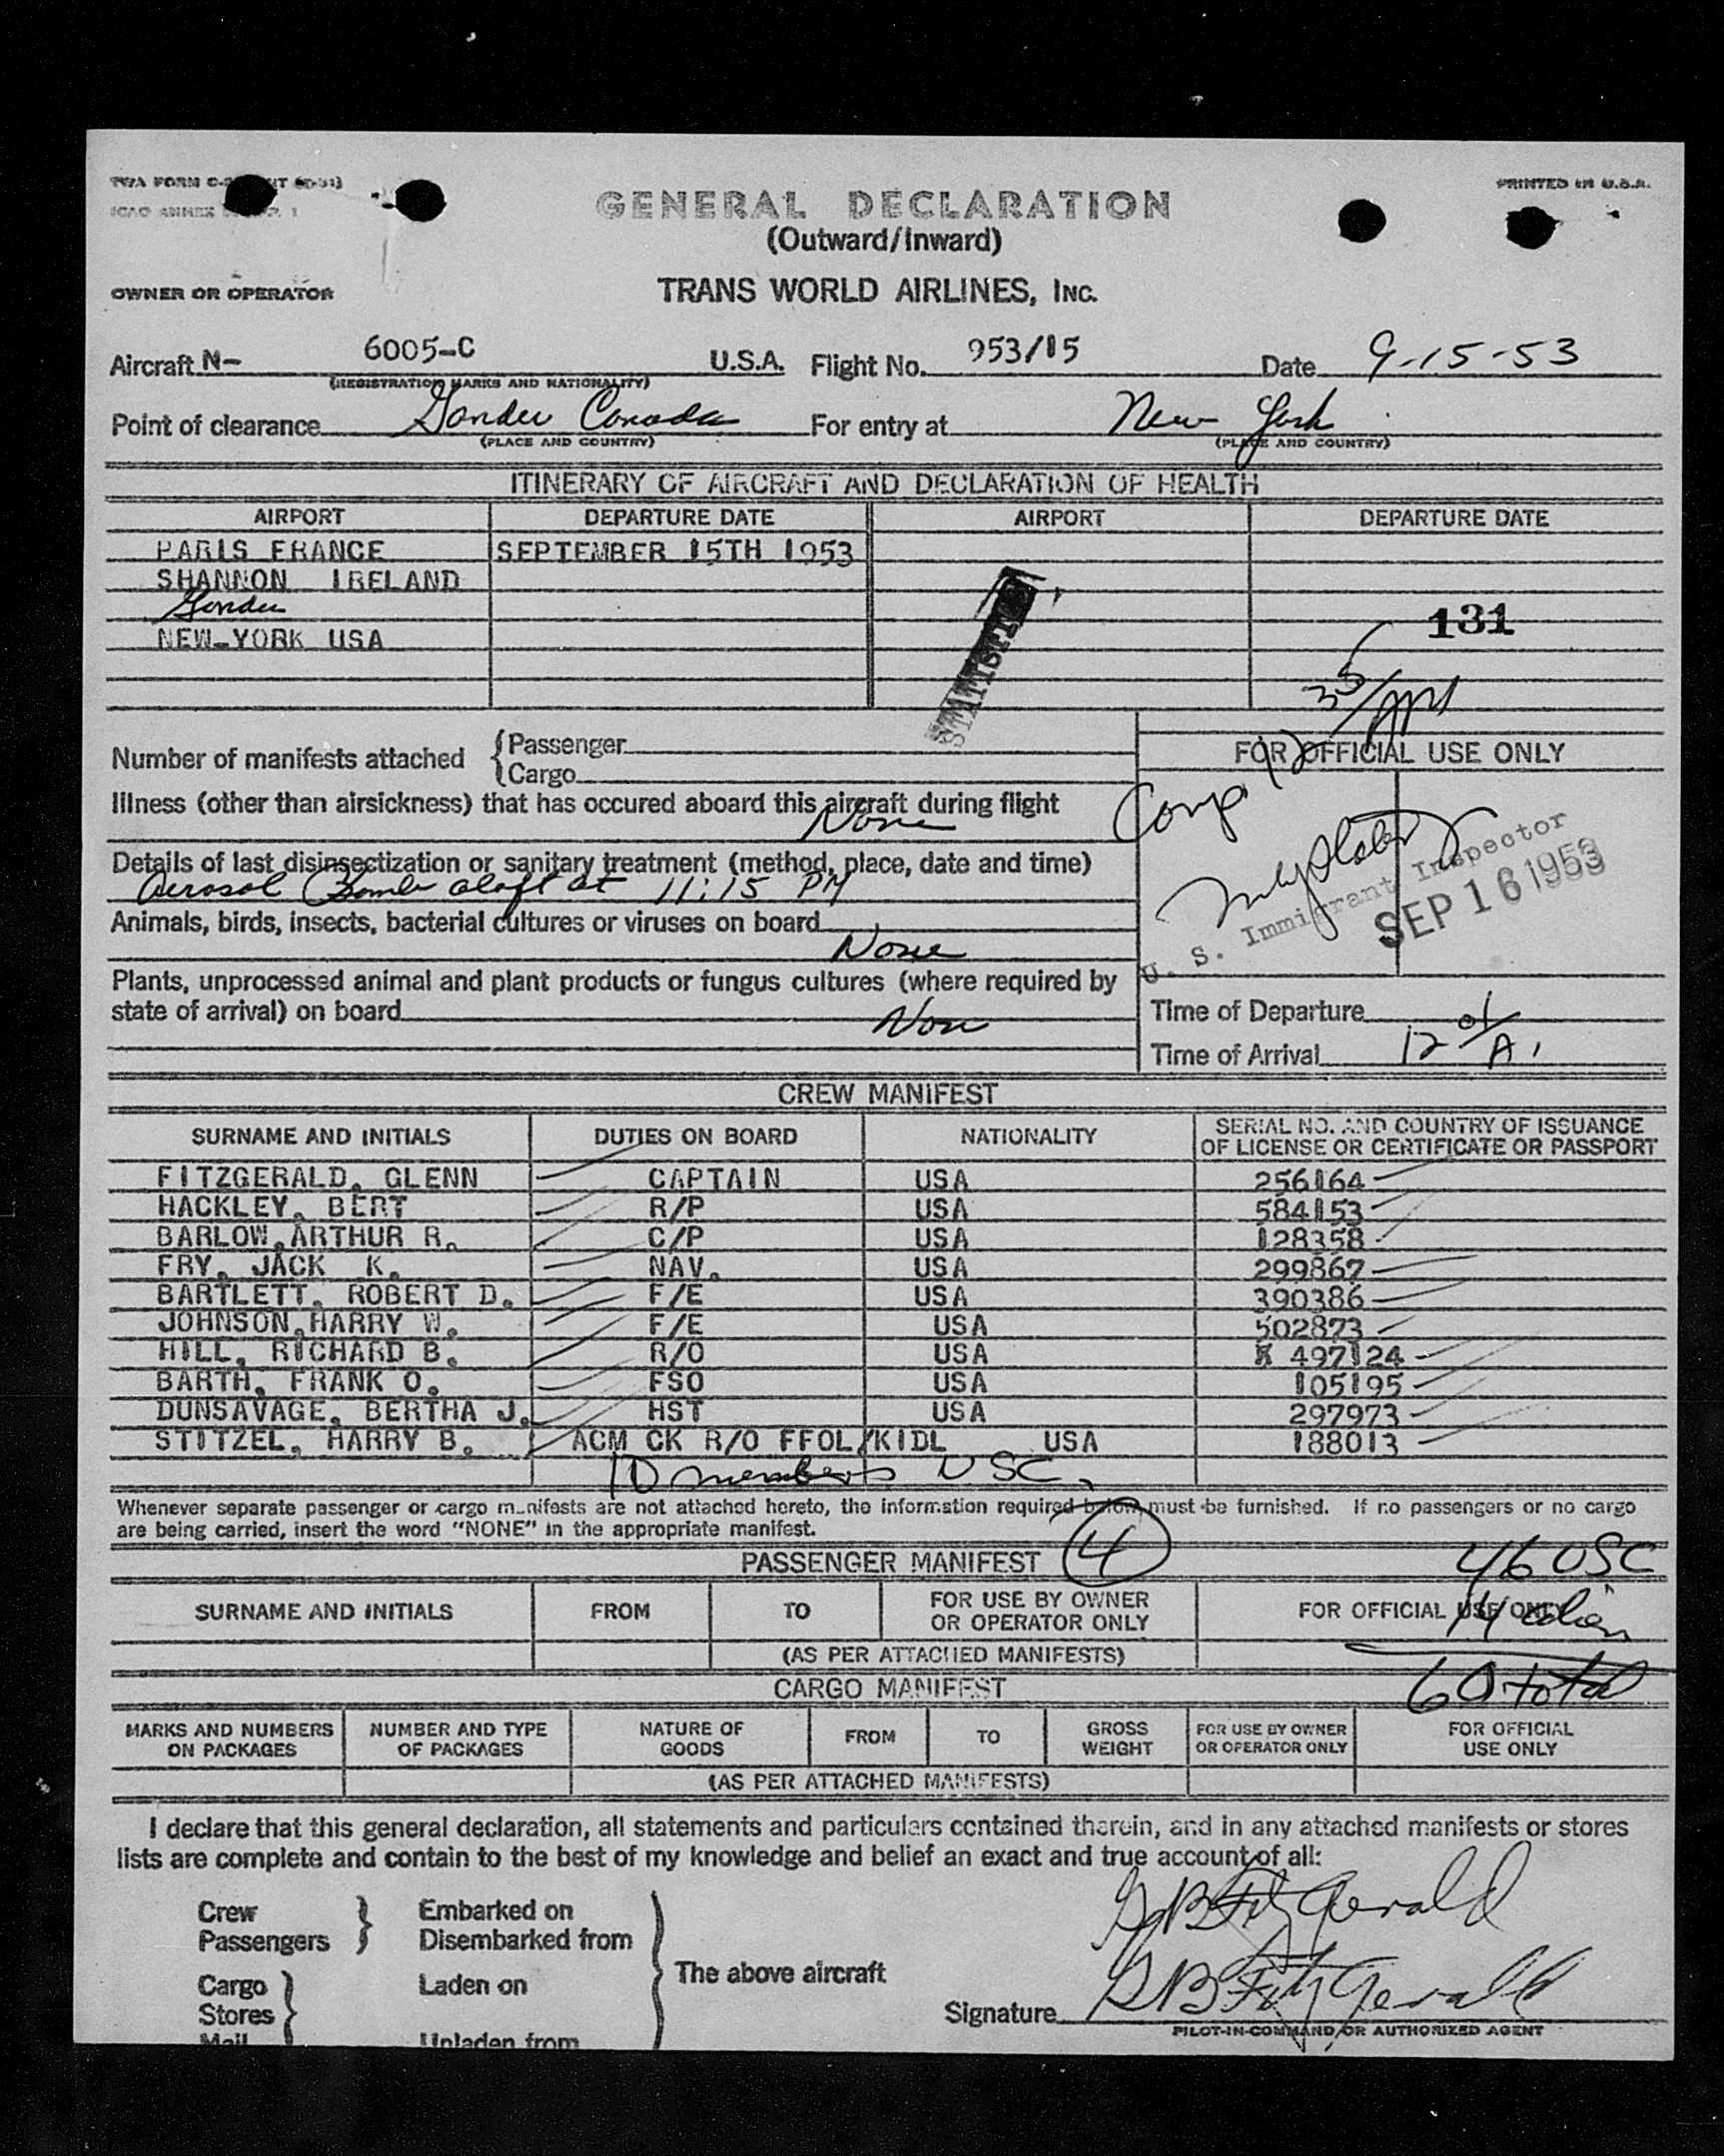 GENERAL DECLARATION
PRINTED IN U.S.A.
(Outward/Inward)
OWNER OR OPERATOR
TRANS WORLD AIRLINES, INC.
Aircraft N- 6005-C U.S.A. Flight No. 953/15 Date 9-15-53
(REGISTRATION MARKS AND NATIONALITY)
Point of clearance Gander Canada For entry at New York
(PLACE AND COUNTRY) (PLACE AND COUNTRY)
ITINERARY OF AIRCRAFT AND DECLARATION OF HEALTH
AIRPORT DEPARTURE DATE AIRPORT DEPARTURE DATE
PARIS FRANCE SEPTEMBER 15TH 1953
SHANNON IRELAND
Gander
131
NEW-YORK USA
Number of manifests attached { Passenger
Cargo
FOR OFFICIAL USE ONLY
Illness (other than airsickness) that has occured aboard this aircraft during flight
None
Details of last disinsectization or sanitary treatment (method, place, date and time)
Aerosol Bomb aloft at 11:15 PM
Animals, birds, insects, bacterial cultures or viruses on board
None
U. S. Immigrant Inspector
SEP 16 1953
Plants, unprocessed animal and plant products or fungus cultures (where required by
state of arrival) on board
None
Time of Departure
Time of Arrival 12 01/A
CREW MANIFEST
SURNAME AND INITIALS DUTIES ON BOARD NATIONALITY SERIAL NO. AND COUNTRY OF ISSUANCE
OF LICENSE OR CERTIFICATE OR PASSPORT
FITZGERALD, GLENN CAPTAIN USA 256164
HACKLEY, BERT R/P USA 584153
BARLOW, ARTHUR R. C/P USA 128358
FRY, JACK K. NAV. USA 299867
BARTLETT, ROBERT D. F/E USA 390386
JOHNSON, HARRY W. F/E USA 502873
HILL, RICHARD B. R/O USA 497124
BARTH, FRANK O. FSO USA 105195
DUNSAVAGE, BERTHA J. HST USA 297973
STITZEL, HARRY B. ACM CK R/O FFOL/KIDL USA 188013
10 members USC
Whenever separate passenger or cargo manifests are not attached hereto, the information required below must be furnished. If no passengers or no cargo
are being carried, insert the word "NONE" in the appropriate manifest.
PASSENGER MANIFEST 4 46 USC
SURNAME AND INITIALS FROM TO FOR USE BY OWNER
OR OPERATOR ONLY FOR OFFICIAL USE ONLY
14 alien
(AS PER ATTACHED MANIFESTS)
60 total
CARGO MANIFEST
MARKS AND NUMBERS
ON PACKAGES NUMBER AND TYPE
OF PACKAGES NATURE OF
GOODS FROM TO GROSS
WEIGHT FOR USE BY OWNER
OR OPERATOR ONLY FOR OFFICIAL
USE ONLY
(AS PER ATTACHED MANIFESTS)
I declare that this general declaration, all statements and particulars contained therein, and in any attached manifests or stores
lists are complete and contain to the best of my knowledge and belief an exact and true account of all:
Crew Embarked on
Passengers Disembarked from
Cargo Laden on The above aircraft
Stores
Mail Unladen from
G B FitzGerald
Signature G B FitzGerald
PILOT-IN-COMMAND, OR AUTHORIZED AGENT